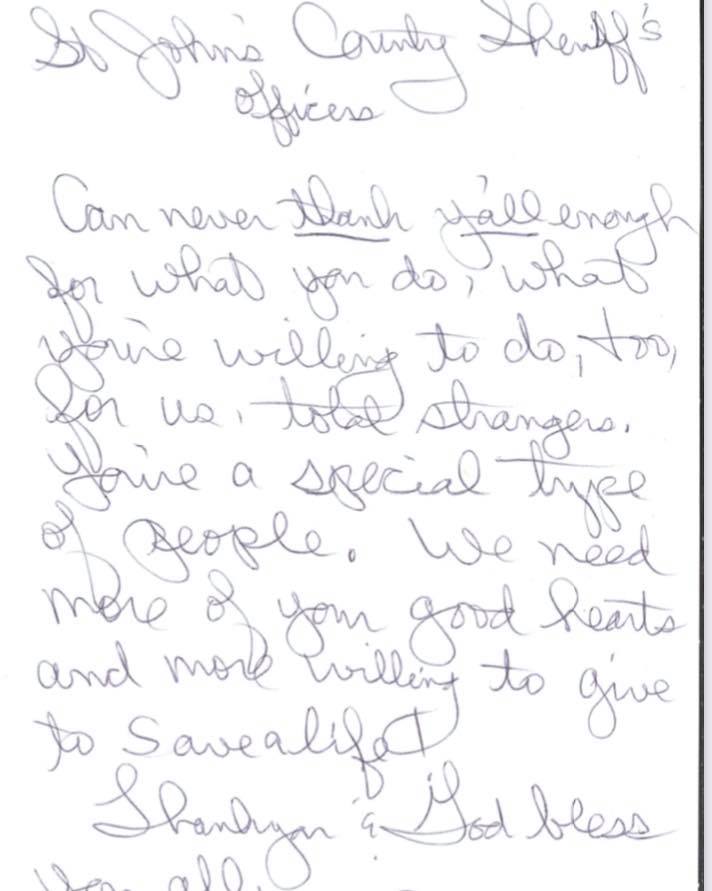 St Johns County Sheriff's
Officers
Can never thank y'all enough
for what you do, what
you're willing to do, too,
for us, total strangers.
You're a special type
of people. We need
more of your good hearts
and more willing to give
to save a life!
Thank you & God bless
you all.